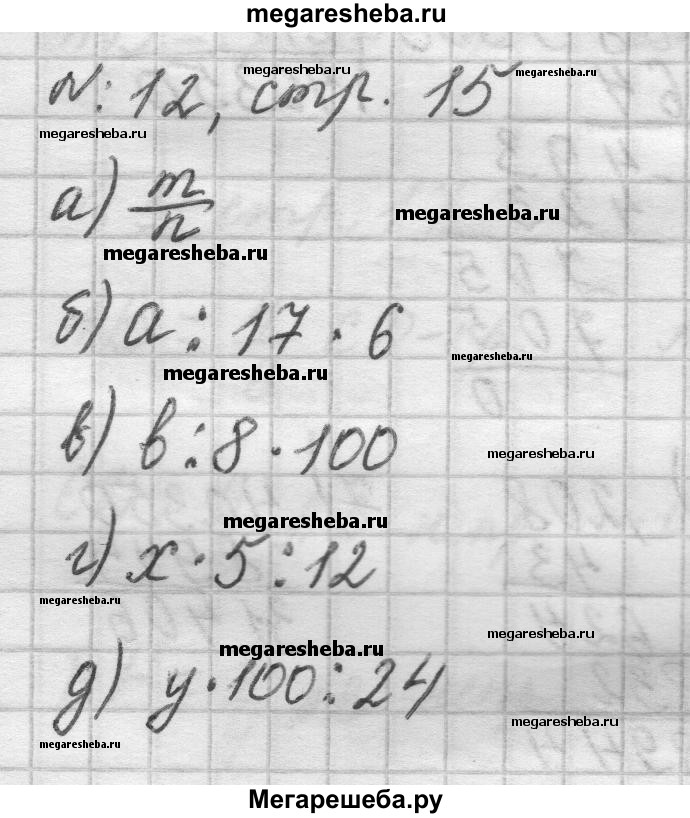 megaresheba.ru
megaresheba.ru
megaresheba.ru
№: 12, стр. 15
megaresheba.ru
а) m/n
megaresheba.ru
megaresheba.ru
б) a : 17 · 6
megaresheba.ru
megaresheba.ru
в) b : 8 · 100
megaresheba.ru
megaresheba.ru
г) x · 5 : 12
megaresheba.ru
megaresheba.ru
megaresheba.ru
д) y · 100 : 24
megaresheba.ru
megaresheba.ru
Мегарешеба.ру